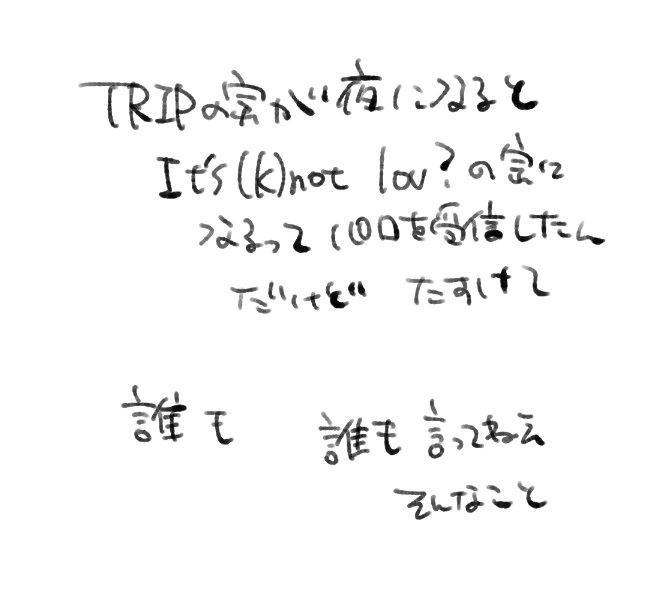 TRIPの宏が夜になると
It's (k)not lov?の宏に
なるって100を受信したん
だけど たすけて
誰も
誰も 言ってねえ
そんなこと